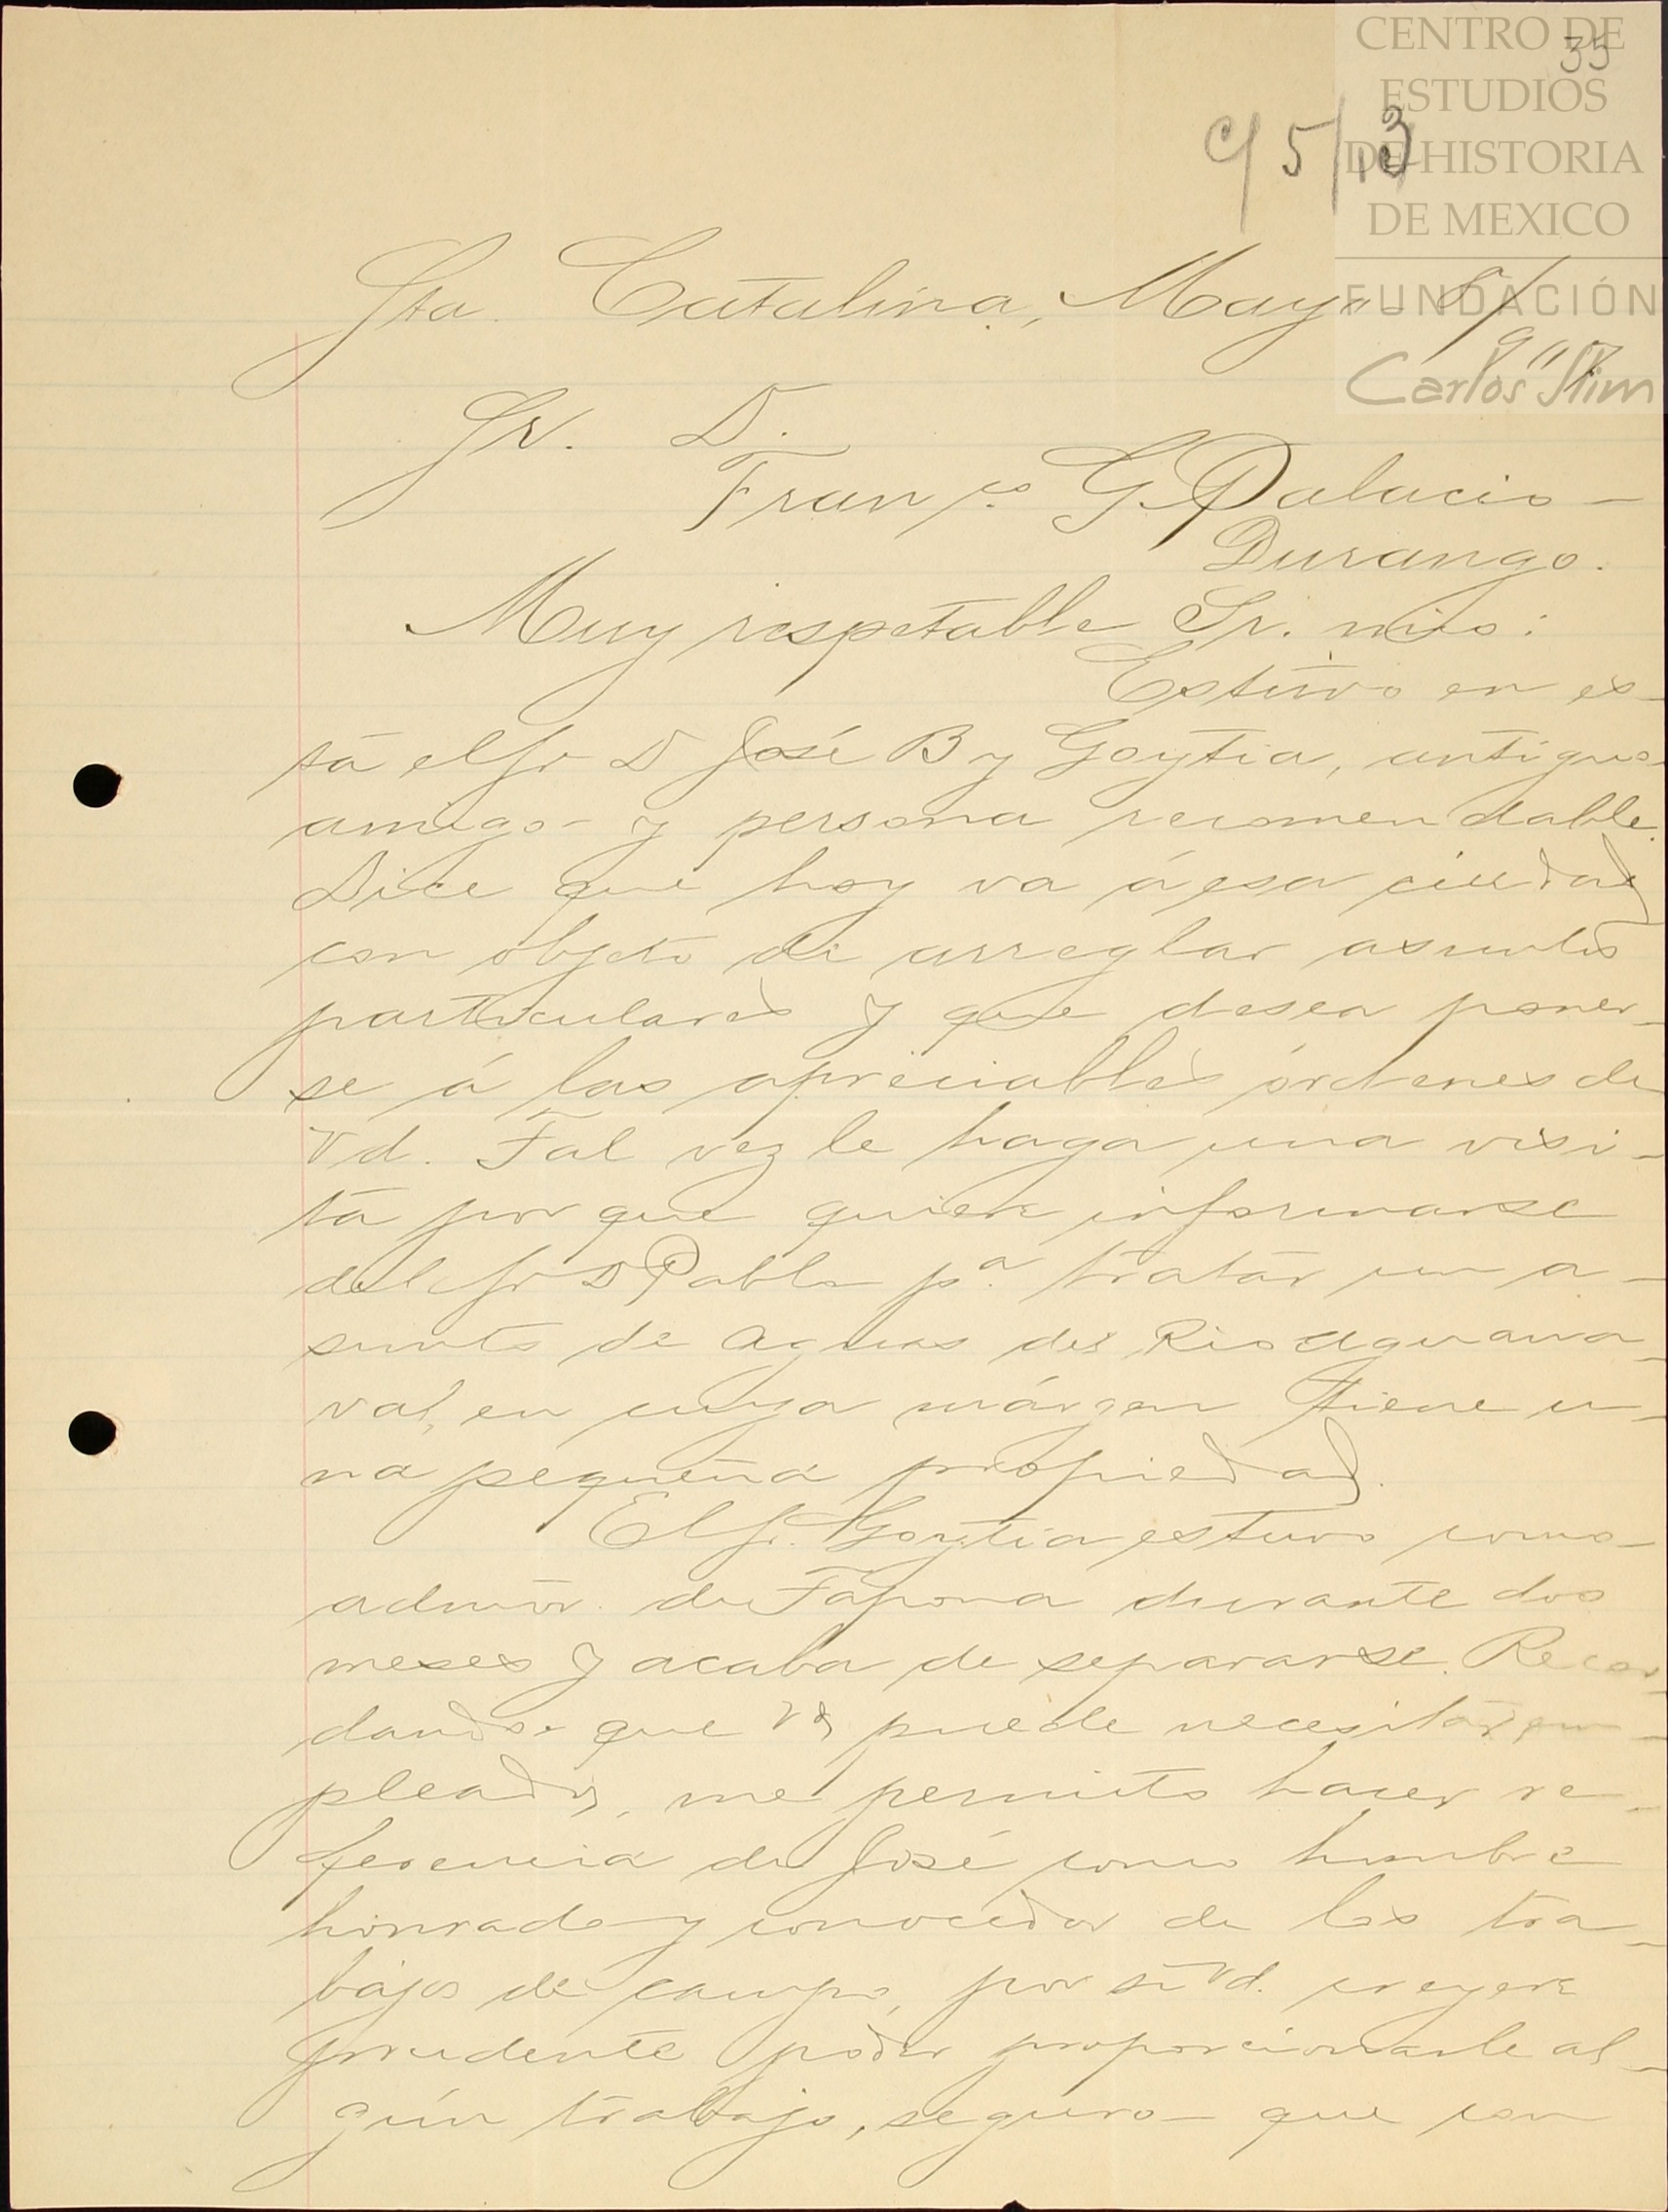 CENTRO DE
ESTUDIOS
DE HISTORIA
DE MEXICO
FUNDACIÓN
Carlos Slim
35
C/ 5/13
Sta. Catalina, Mayo 8/
907
Sr. D.
Franco. G. Palacio-
Durango.
Muy respetable Sr. mio:
Estuvo en es-
ta el Sr D José B y Goytia, antiguo
amigo y persona recomendable.
Dice que hoy va á esa ciudad
con objeto de arreglar asuntos
particulares y que desea poner-
se á las apreciables órdenes de
Vd. Tal vez le haga una visi-
ta por que quiere informarse
del Sr D Pablo pa. tratar un a-
sunto de aguas del Rio Aguana-
val, en cuya márgen tiene u-
na pequeña propiedad.
El Sr. Goytia estuvo como
admor. de Tapona durante dos
meses y acaba de separarse. Recor-
dando que Vd puede necesitar em-
pleados, me permito hacer re-
ferencia de José como hombre
honrado y conocedor de los tra-
bajos de campo, por si Vd. creyere
prudente poder proporcionarle al-
gún trabajo, seguro que con